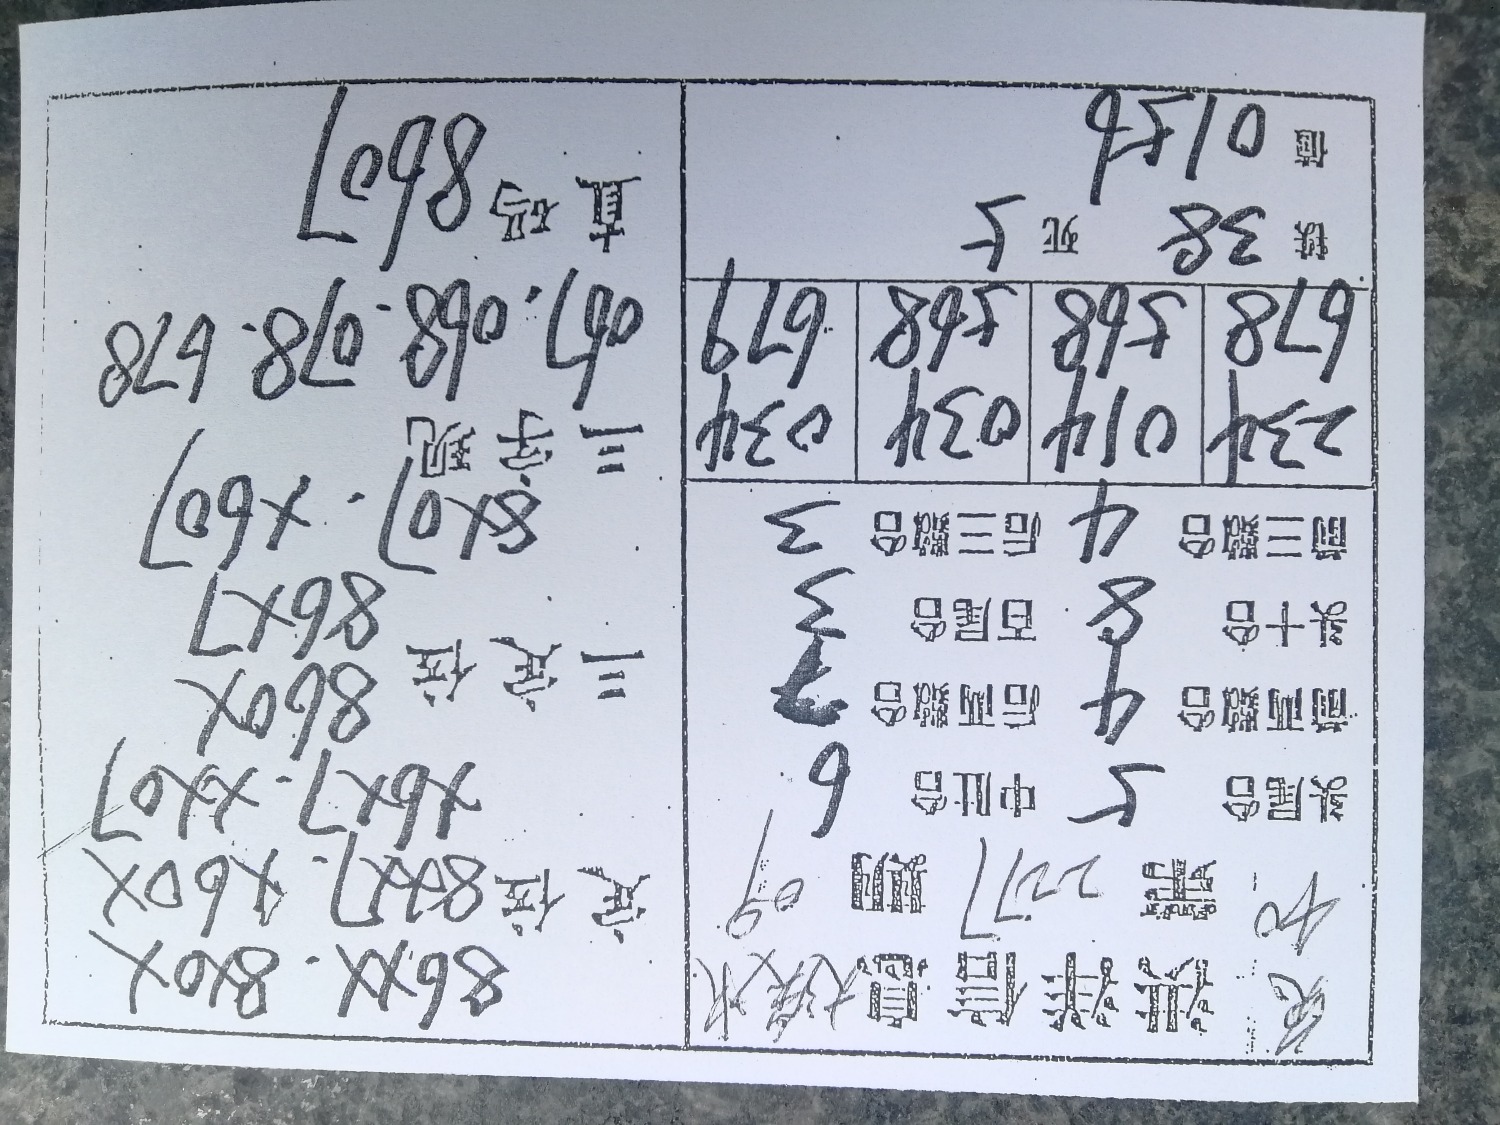 信息
期
头尾合 5 中肚合 6
前两合 4 后两合 7
头十合 8 百尾合 3
前三合 4 后三合 3
234 014 034 034
678 568 568 679
铁 38 死 5
值 0156
86XX. 8X0X
定位 8XX7. X60X
X6X7. XX07
860X
三定位
86X7
8X07. X607
三字现
067. 068. 078. 678
直码 8607